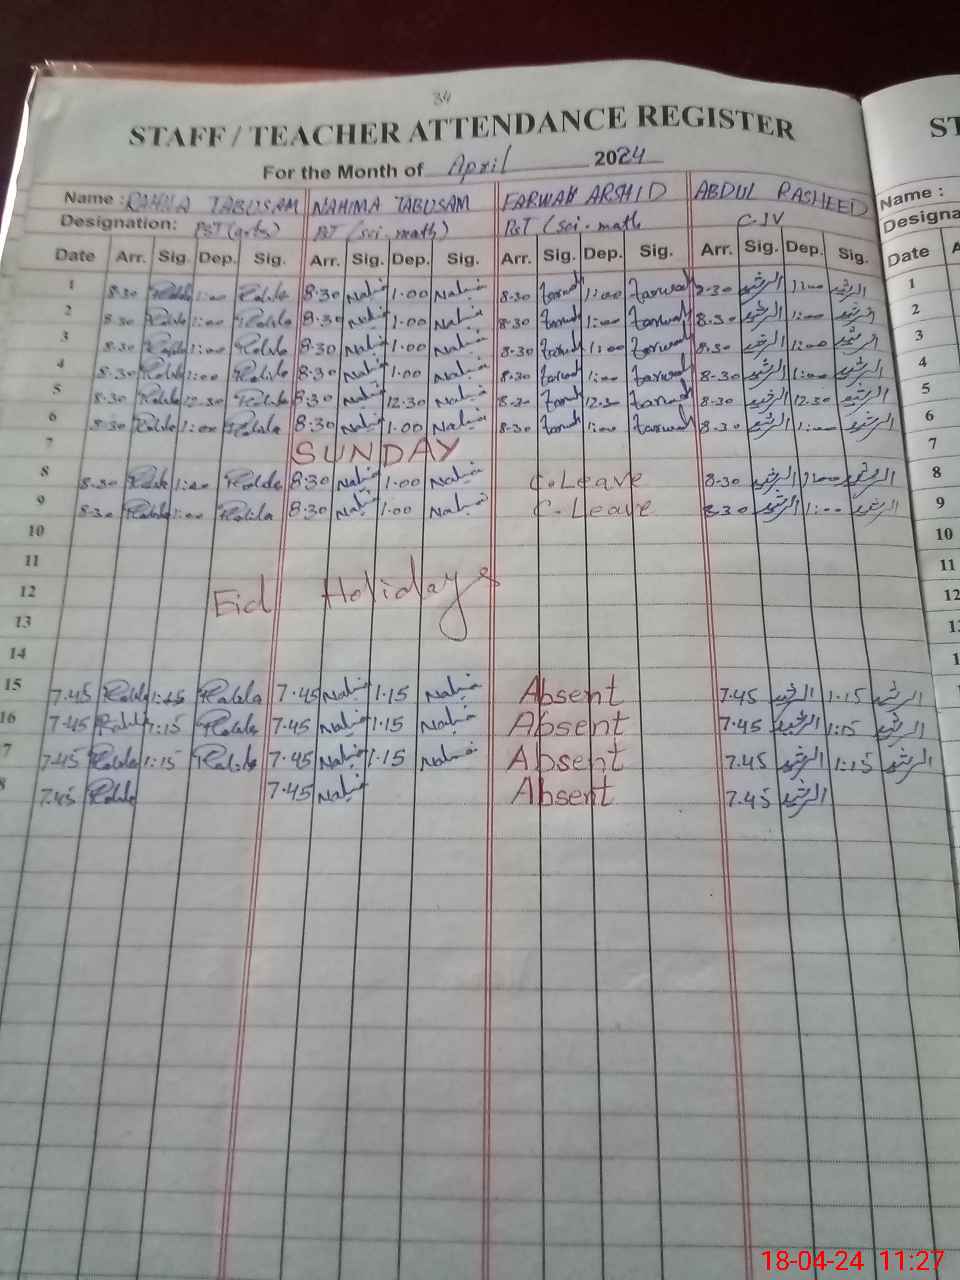 34
STAFF / TEACHER ATTENDANCE REGISTER
ST
For the Month of April 2024
Name : RAHILA TABUSAM NAHIMA TABUSAM FARWAH ARSHID ABDUL RASHEED Name :
Designation: PST (arts) PST (sci. math) PST (sci. math C-IV Designa
Date Arr. Sig. Dep. Sig. Arr. Sig. Dep. Sig. Arr. Sig. Dep. Sig. Arr. Sig. Dep. Sig. Date A
1 8.30 1:00 8.30 1.00 8-30 Farwah 1:00 Farwah 8-30 الرشید 1:00 الرشید 1
2 8.30 1:00 8.30 1.00 8-30 Farwah 1:00 Farwah 8-30 الرشید 1:00 الرشید 2
3 8.30 1:00 8.30 1.00 8-30 Farwah 1:00 Farwah 8-30 الرشید 1:00 الرشید 3
4 8.30 1:00 8.30 1.00 8-30 Farwah 1:00 Farwah 8-30 الرشید 1:00 الرشید 4
5 8.30 12.30 8.30 12.30 8-30 Farwah Farwah 8-30 الرشید 12.30 الرشید 5
6 8.30 1:00 8.30 1.00 8-30 Farwah 1:00 Farwah 8-30 الرشید 1:00 الرشید 6
7 SUNDAY 7
8 8.30 1:00 8.30 1.00 C.Leave 8-30 الرشید 1:00 الرشید 8
9 8.30 1:00 8.30 1.00 C-Leave 8.30 الرشید 1:00 الرشید 9
10 10
11 11
12 Eid Holidays 12
13
14
15 7.45 1:15 7.45 1.15 Absent 7.45 الرشید 1.15 الرشید
16 7.45 1:15 7.45 1.15 Absent 7.45 الرشید 1:15 الرشید
7 7.45 1:15 7.45 1.15 Absent 7.45 الرشید 1:15 الرشید
8 7.45 7.45 Absent 7.45 الرشید
18-04-24 11:27